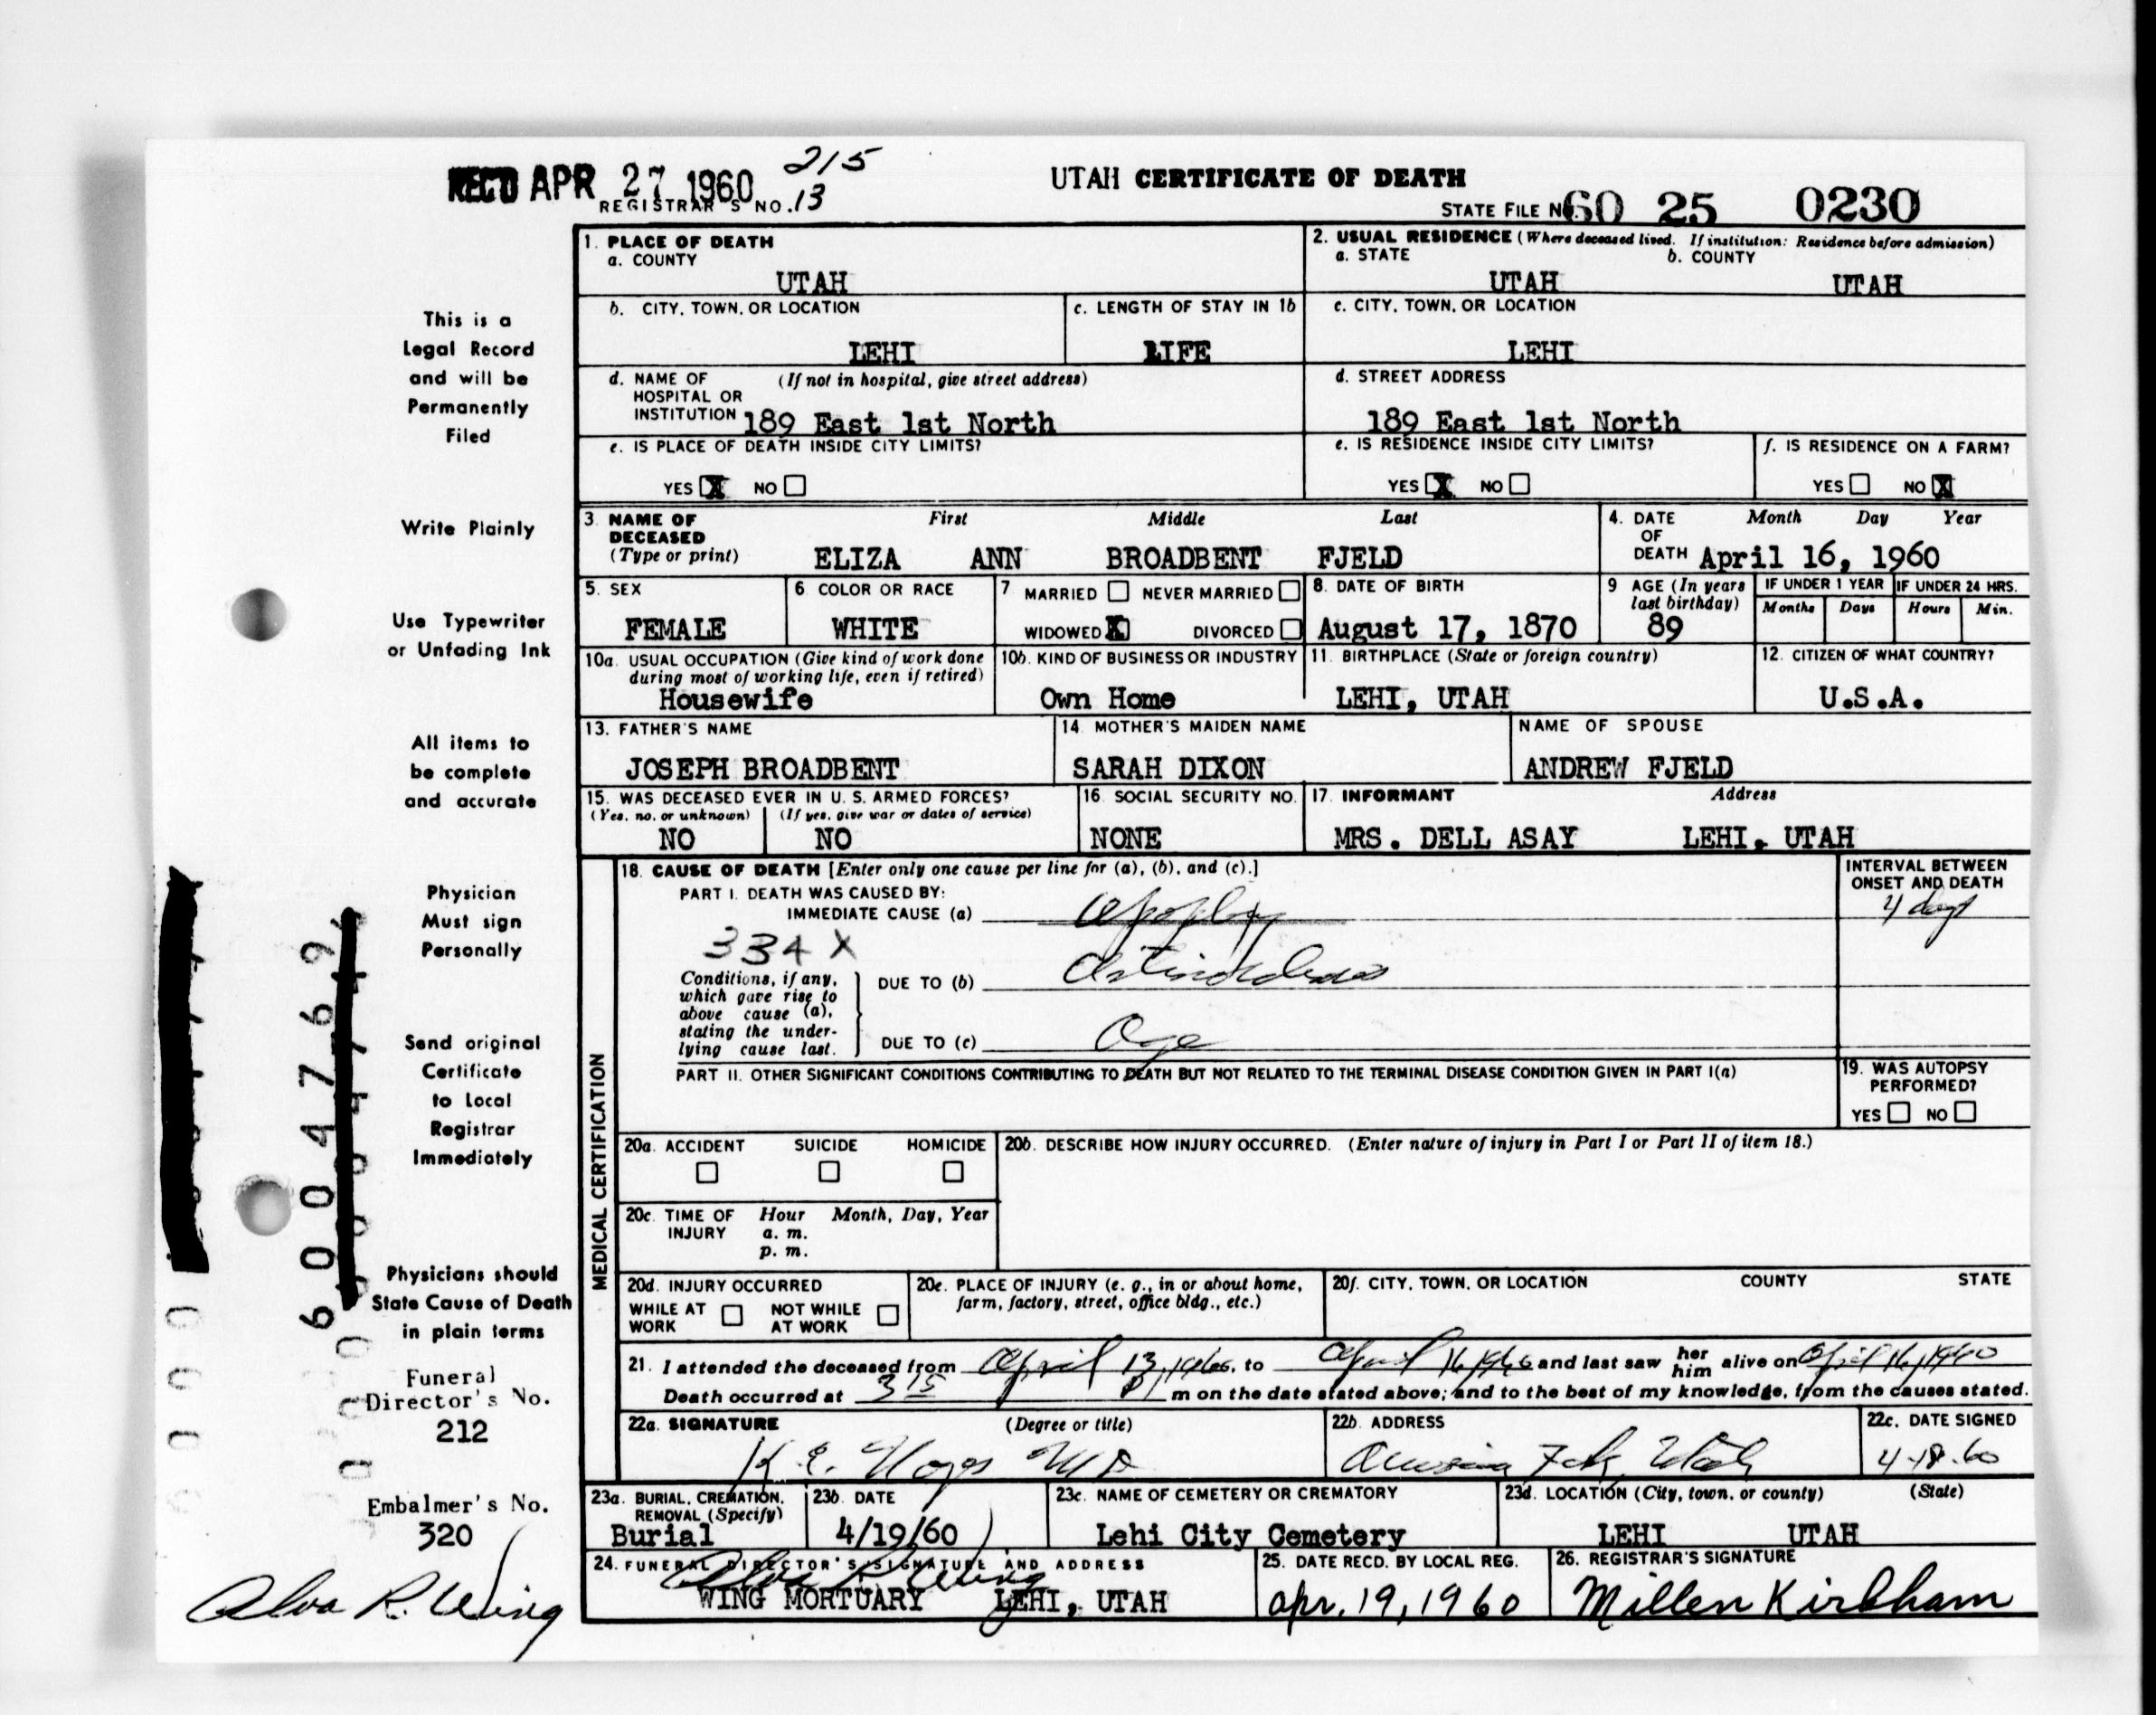 REC'D APR 27 1960
215
REGISTRAR'S NO. 13
UTAH CERTIFICATE OF DEATH
STATE FILE NO. 60 25 0230
This is a
Legal Record
and will be
Permanently
Filed
Write Plainly
Use Typewriter
or Unfading Ink
All items to
be complete
and accurate
Physician
Must sign
Personally
Send original
Certificate
to Local
Registrar
Immediately
Physicians should
State Cause of Death
in plain terms
Funeral
Director's No.
212
Embalmer's No.
320
Alva R. Wing
6004769
1. PLACE OF DEATH
a. COUNTY
UTAH
b. CITY, TOWN, OR LOCATION
LEHI
c. LENGTH OF STAY IN 1b
LIFE
d. NAME OF (If not in hospital, give street address)
HOSPITAL OR
INSTITUTION 189 East 1st North
e. IS PLACE OF DEATH INSIDE CITY LIMITS?
YES X NO
2. USUAL RESIDENCE (Where deceased lived. If institution: Residence before admission)
a. STATE b. COUNTY
UTAH UTAH
c. CITY, TOWN, OR LOCATION
LEHI
d. STREET ADDRESS
189 East 1st North
e. IS RESIDENCE INSIDE CITY LIMITS?
YES X NO
f. IS RESIDENCE ON A FARM?
YES NO X
3. NAME OF First Middle Last
DECEASED
(Type or print) ELIZA ANN BROADBENT FJELD
4. DATE Month Day Year
OF
DEATH April 16, 1960
5. SEX
FEMALE
6. COLOR OR RACE
WHITE
7 MARRIED NEVER MARRIED
WIDOWED X DIVORCED
8. DATE OF BIRTH
August 17, 1870
9 AGE (In years
last birthday)
89
IF UNDER 1 YEAR
Months Days
IF UNDER 24 HRS.
Hours Min.
10a. USUAL OCCUPATION (Give kind of work done
during most of working life, even if retired)
Housewife
10b. KIND OF BUSINESS OR INDUSTRY
Own Home
11. BIRTHPLACE (State or foreign country)
LEHI, UTAH
12. CITIZEN OF WHAT COUNTRY?
U.S.A.
13. FATHER'S NAME
JOSEPH BROADBENT
14. MOTHER'S MAIDEN NAME
SARAH DIXON
NAME OF SPOUSE
ANDREW FJELD
15. WAS DECEASED EVER IN U. S. ARMED FORCES?
(Yes, no, or unknown) (If yes, give war or dates of service)
NO NO
16. SOCIAL SECURITY NO.
NONE
17. INFORMANT Address
MRS. DELL ASAY LEHI, UTAH
MEDICAL CERTIFICATION
18. CAUSE OF DEATH [Enter only one cause per line for (a), (b), and (c).]
PART I. DEATH WAS CAUSED BY:
IMMEDIATE CAUSE (a) Apoplexy
INTERVAL BETWEEN
ONSET AND DEATH
4 days
334 X
Conditions, if any,
which gave rise to
above cause (a),
stating the under-
lying cause last.
DUE TO (b)
DUE TO (c) Age
PART II. OTHER SIGNIFICANT CONDITIONS CONTRIBUTING TO DEATH BUT NOT RELATED TO THE TERMINAL DISEASE CONDITION GIVEN IN PART I(a)
19. WAS AUTOPSY
PERFORMED?
YES NO
20a. ACCIDENT SUICIDE HOMICIDE
20b. DESCRIBE HOW INJURY OCCURRED. (Enter nature of injury in Part I or Part II of item 18.)
20c. TIME OF Hour Month, Day, Year
INJURY a. m.
p. m.
20d. INJURY OCCURRED
WHILE AT WORK NOT WHILE AT WORK
20e. PLACE OF INJURY (e. g., in or about home,
farm, factory, street, office bldg., etc.)
20f. CITY, TOWN, OR LOCATION COUNTY STATE
21. I attended the deceased from April 13, 1960, to April 16 1960 and last saw her him alive on April 16, 1960
Death occurred at 3 15 P m on the date stated above; and to the best of my knowledge, from the causes stated.
22a. SIGNATURE (Degree or title)
K. E. MD
22b. ADDRESS
American Fork, Utah
22c. DATE SIGNED
4-18-60
23a. BURIAL, CREMATION,
REMOVAL (Specify)
Burial
23b. DATE
4/19/60
23c. NAME OF CEMETERY OR CREMATORY
Lehi City Cemetery
23d. LOCATION (City, town, or county) (State)
LEHI UTAH
24. FUNERAL DIRECTOR'S SIGNATURE AND ADDRESS
Alva R. Wing
WING MORTUARY LEHI, UTAH
25. DATE RECD. BY LOCAL REG.
Apr. 19, 1960
26. REGISTRAR'S SIGNATURE
Millen Kirkham